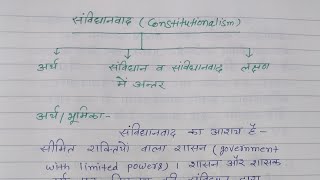 संविधानवाद (Constitutionalism)
अर्थ संविधान व संविधानवाद लक्षण
में अन्तर
अर्थ/भूमिका:-
संविधानवाद का आशय है-
सीमित शक्तियों वाला शासन (government
with limited powers)। शासन और शासक